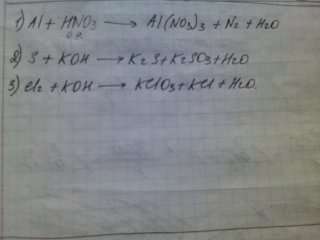 1) Al + HNO₃ → Al(NO₃)₃ + N₂ + H₂O
о.р.
2) S + KOH → K₂S + K₂SO₃ + H₂O
3) Cl₂ + KOH → KClO₃ + KCl + H₂O